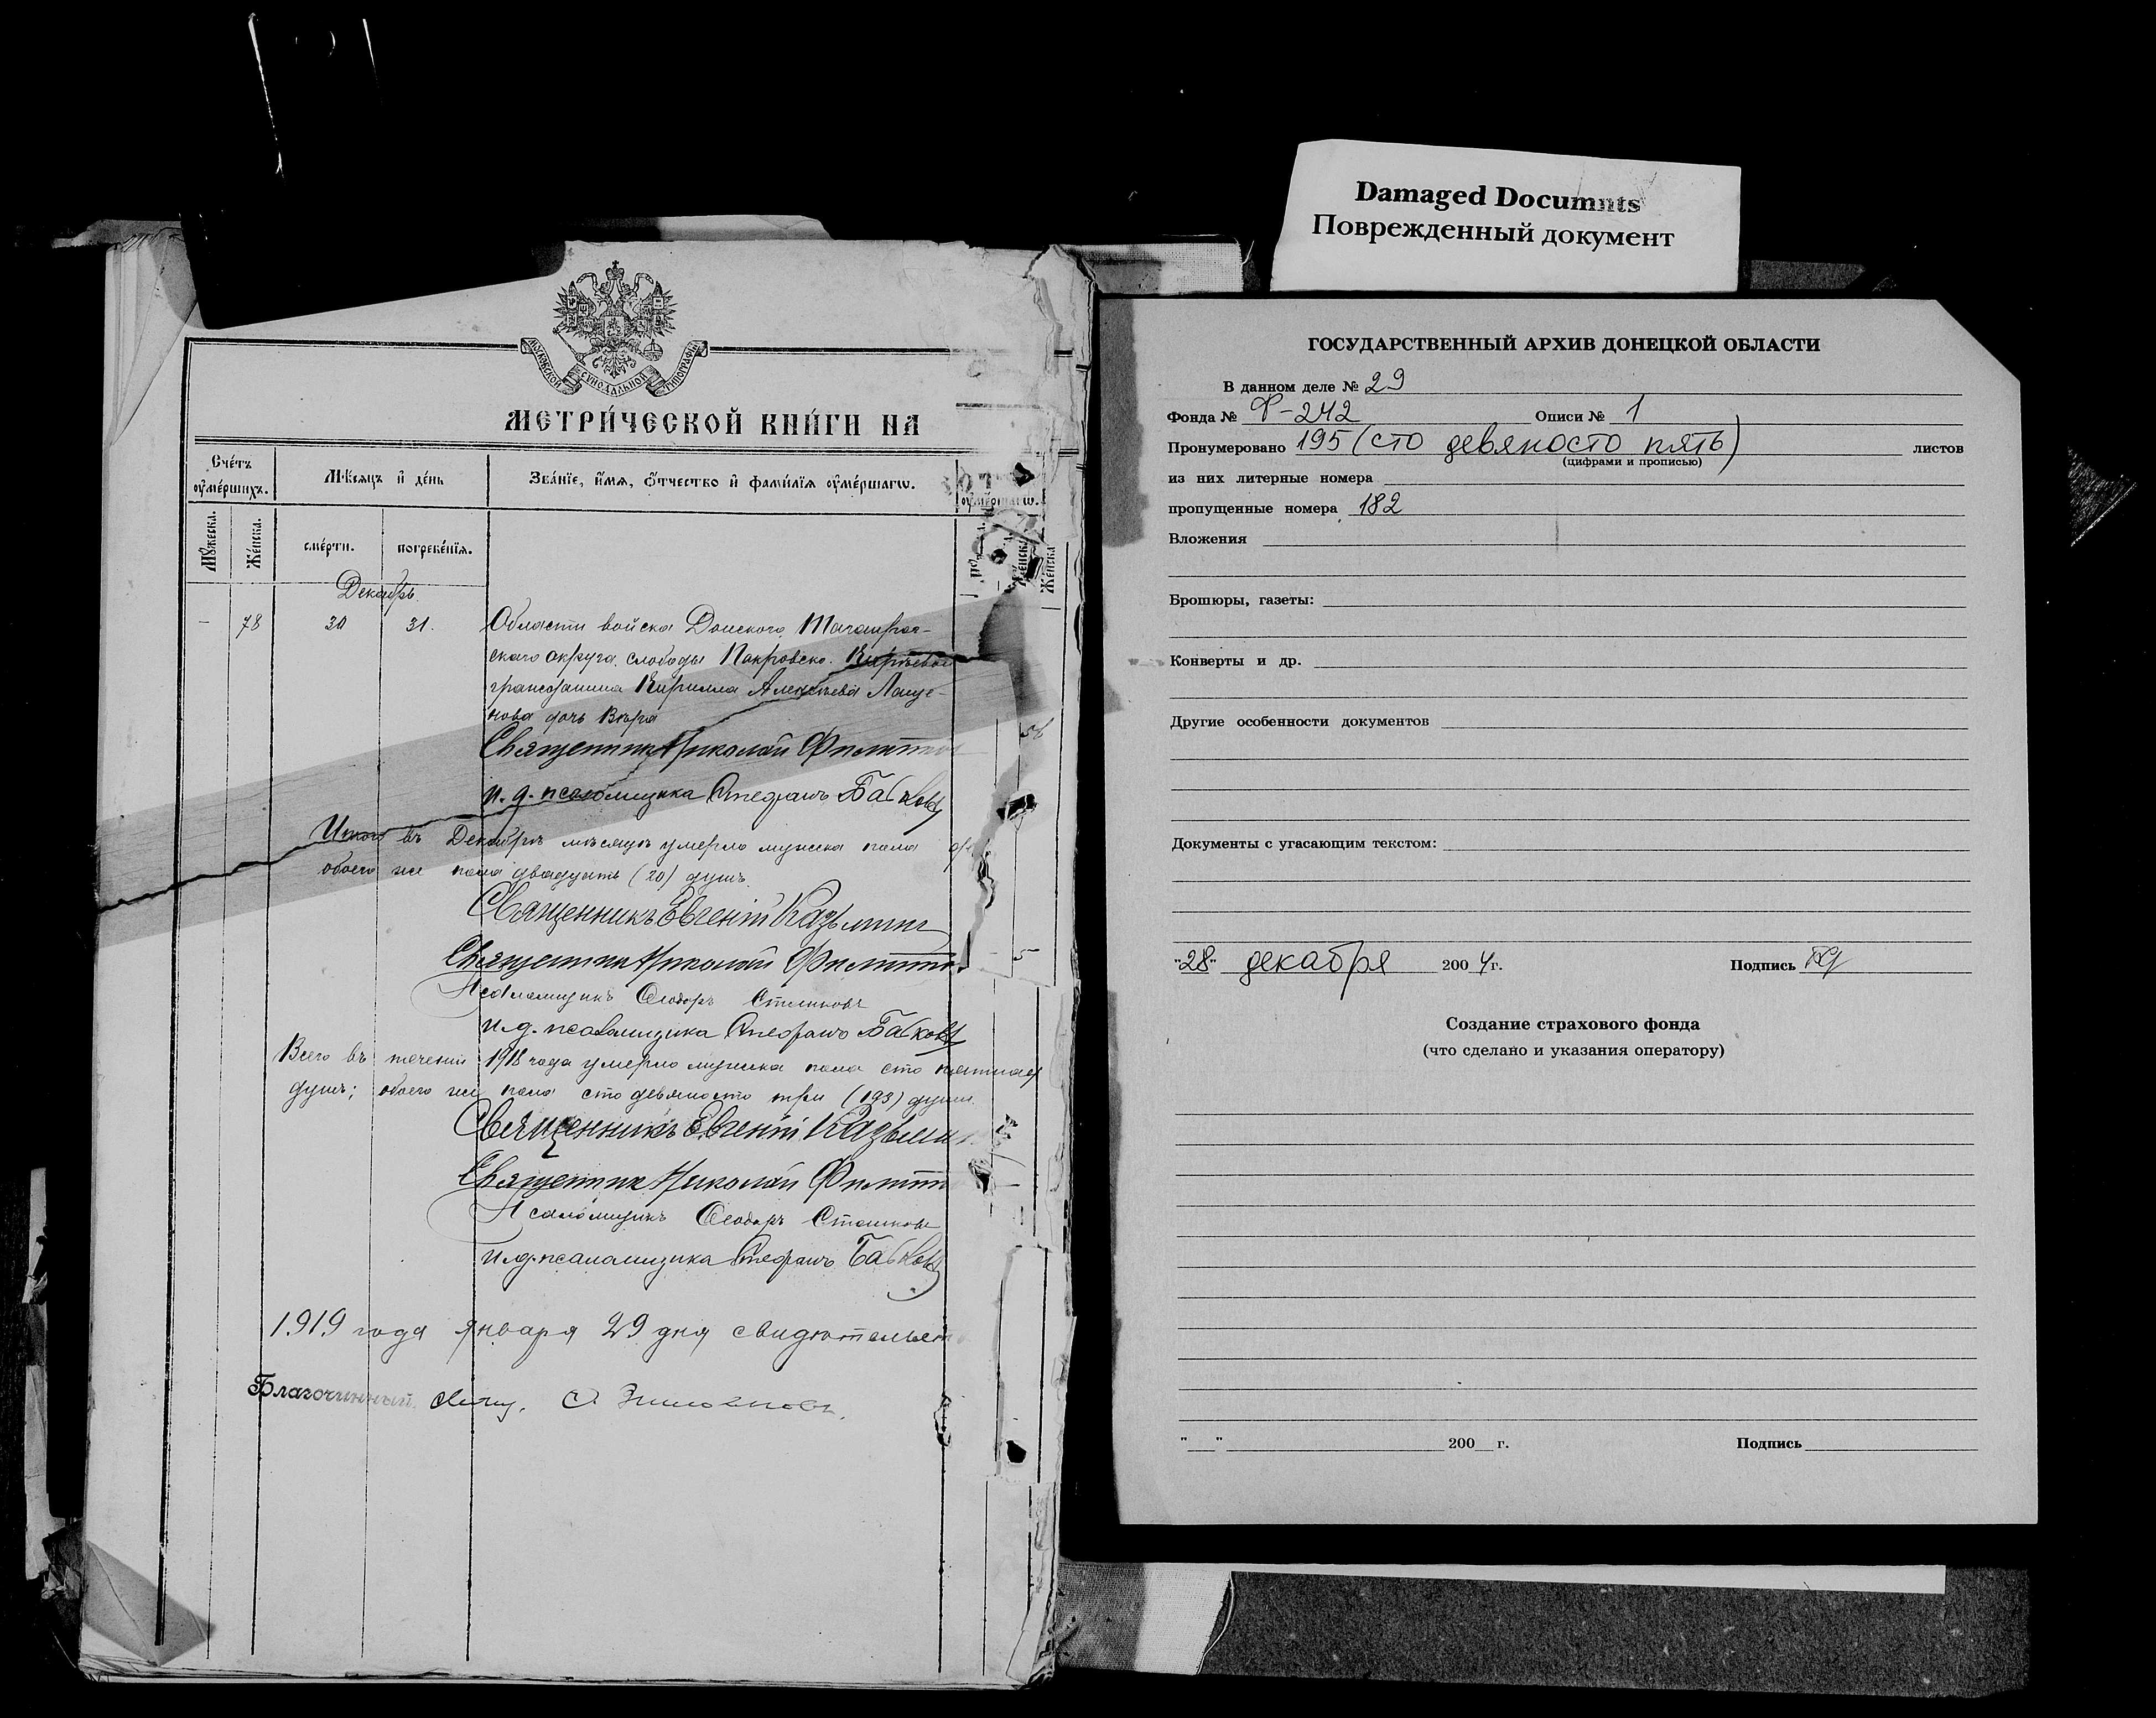 МОСКОВСКОЙ СѴНОДАЛЬНОЙ ТИПОГРАФІИ
МЕТРИ́ЧЕСКОЙ КНИ́ГИ НА
Сче́тъ ᲂу҆ме́ршихъ.
Мѣ́сяцъ и҆ де́нь
Зва́нїе, и҆́мѧ, ѻ҆́тчество и҆ фамѝлїѧ ᲂу҆ме́ршагѡ.
ᲂу҆ме́ршагѡ.
Мꙋ́жеска.
Же́нска.
сме́рти.
погребе́нїѧ.
Же́нска
Декабрь.
- 78 30 31. Области войска Донского, Таганрог-
скаго округа, слободы Покровско-Кирѣевой
гражданина Кирилла Алексѣева Лаще-
нова дочь Вѣра
Священник Николай
и. д. псаломщика Стефанъ Бабков
Итого въ Декабрѣ мѣсяцѣ умерло мужска пола
обоего же пола двадцать (20) душъ.
Священникъ Евгеній
Священник Николай
Псаломщикъ Ѳеодоръ
и. д. псаломщика Стефанъ Бабков
Всего въ теченіи 1918 года умерло мужска пола сто
душъ; обоего же пола сто девяносто три (193) души.
Священникъ Евгеній
Священник Николай
Псаломщикъ Ѳеодоръ
и. д. псаломщика Стефанъ Бабков
1919 года января 29 дня
Благочинный
Damaged Documnts
Поврежденный документ
ГОСУДАРСТВЕННЫЙ АРХИВ ДОНЕЦКОЙ ОБЛАСТИ
В данном деле № 29
Фонда № Ф-242 Описи № 1
Пронумеровано 195 (сто девяносто пять) листов
(цифрами и прописью)
из них литерные номера
пропущенные номера 182
Вложения
Брошюры, газеты:
Конверты и др.
Другие особенности документов
Документы с угасающим текстом:
"28" декабря 2004 г. Подпись
Создание страхового фонда
(что сделано и указания оператору)
"__" 200__ г. Подпись